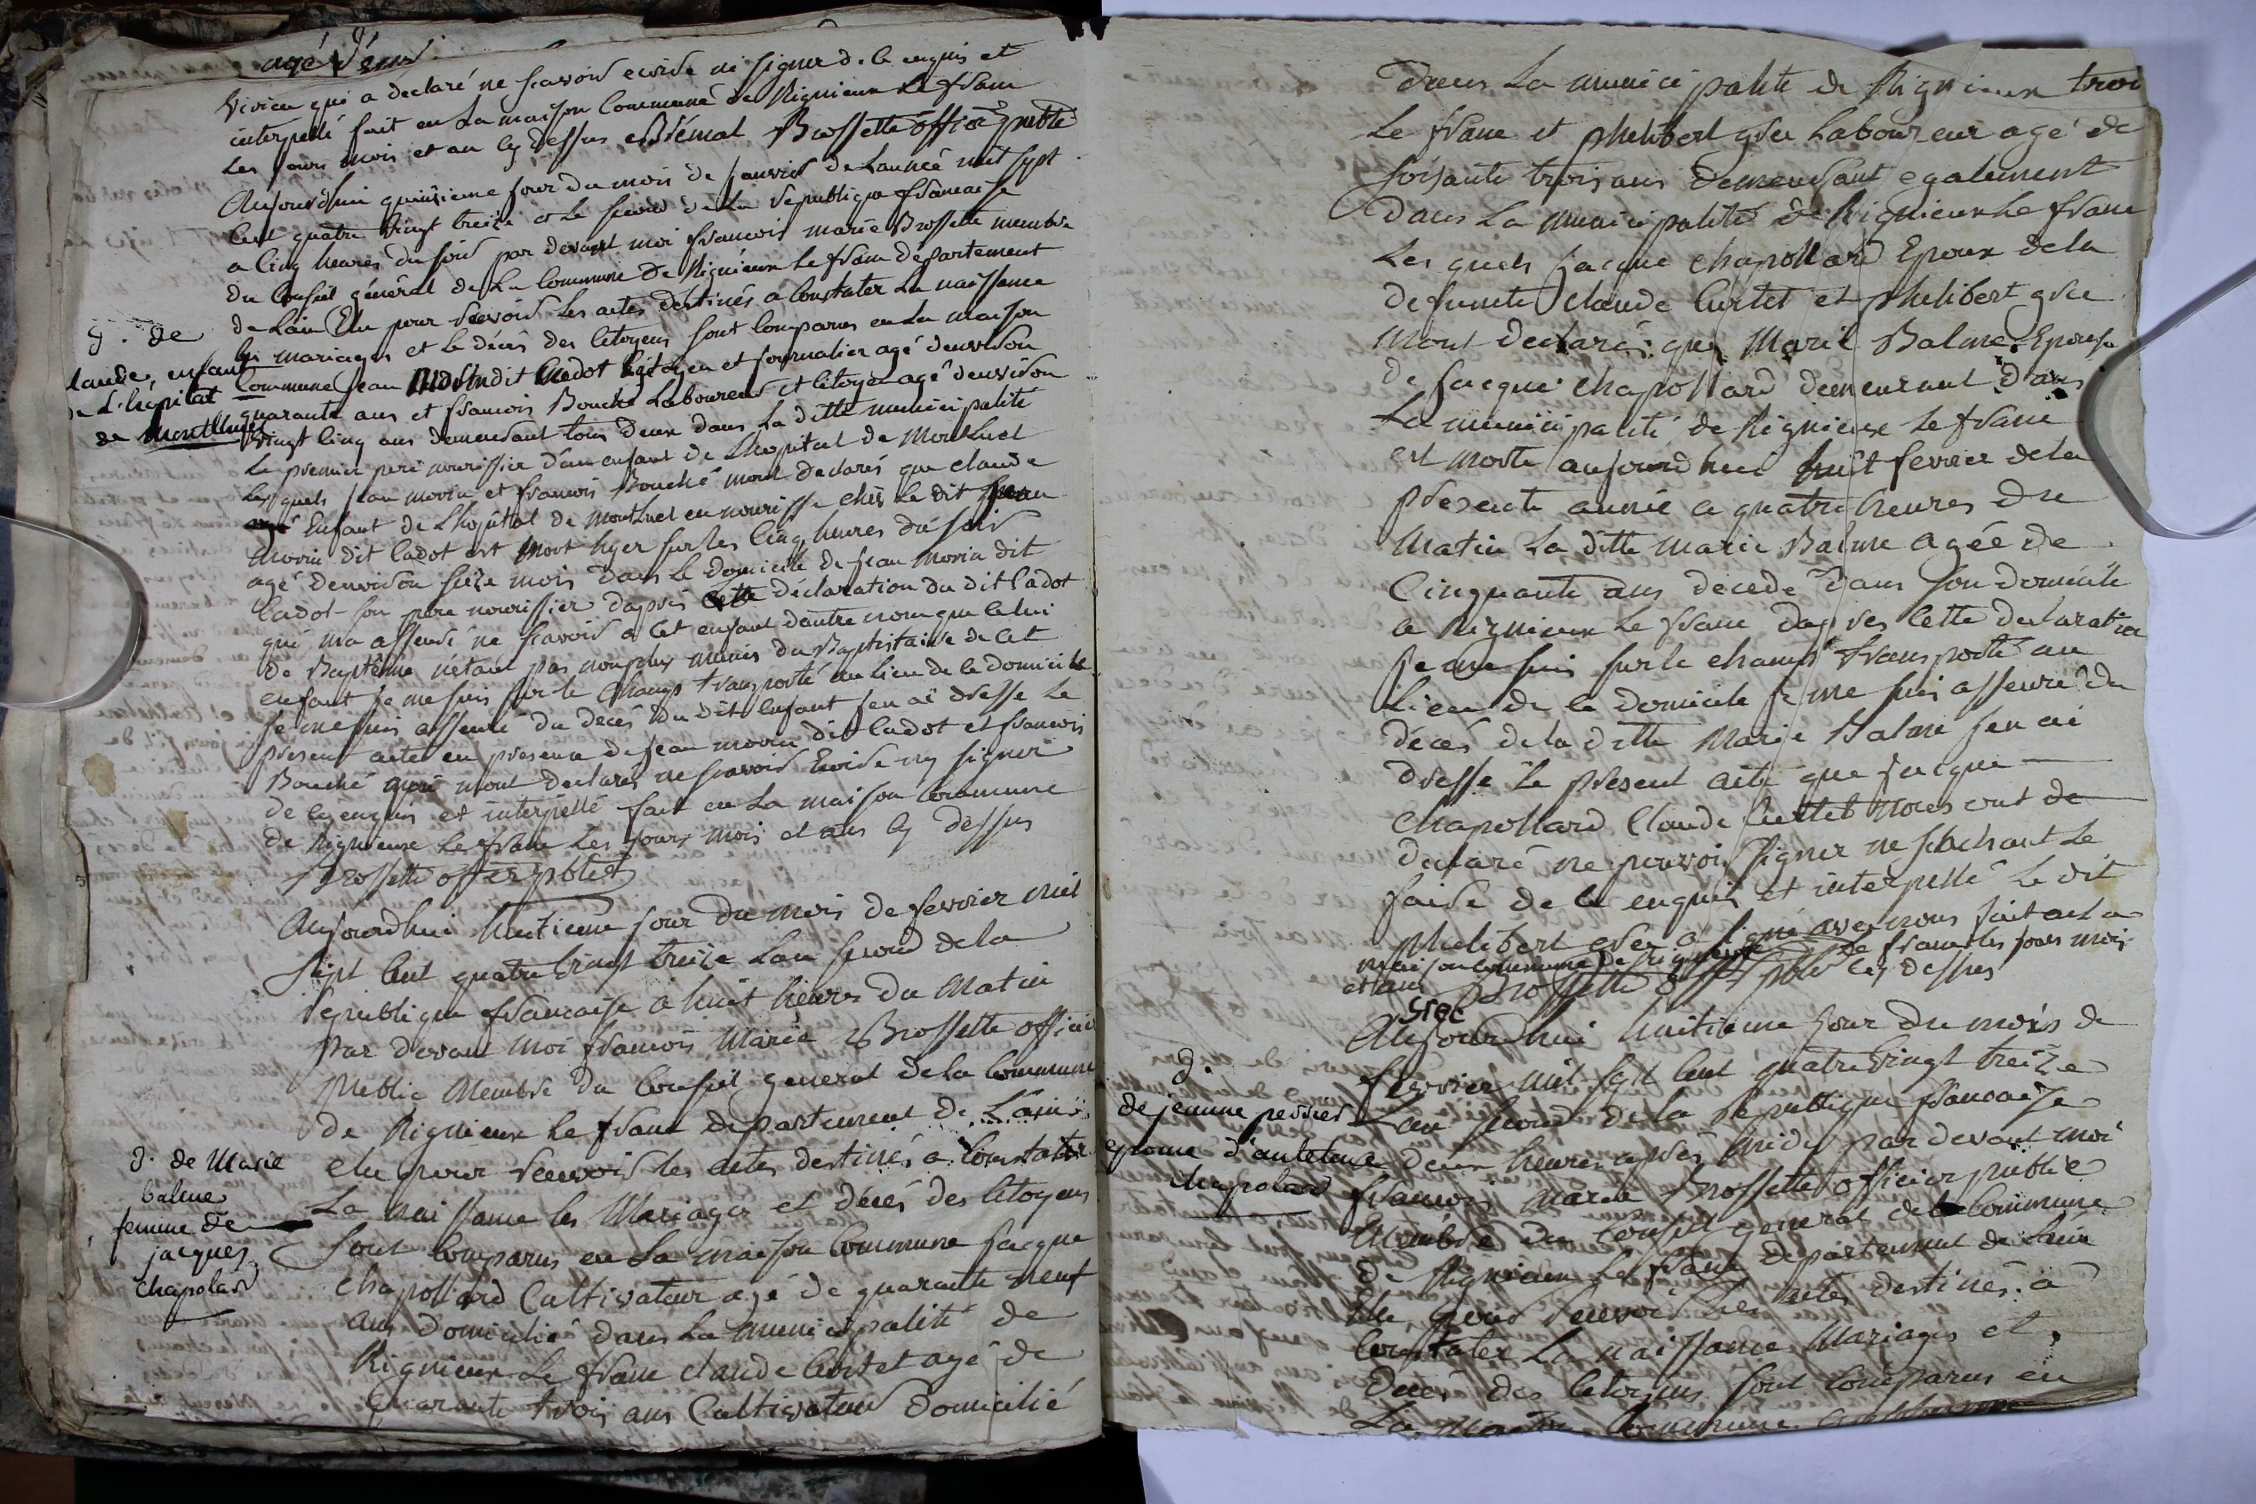 agé d'env
Vivien qui a déclaré ne scavoir ecrire ni signer de ce enquis et
interpellé fait en La maison Commune de Rignieux Le franc
Les jours mois et an cy dessus Brossette offic public
Aujourd'hui quinzieme jour du mois de janvier de Lannée mil sept
Cent quatre vingt treize et Le second de La republique francaise
a Cinq heures du soir par devant moi francois marie Brossette membre
du Conseil général de La Commune de Rignieux Le franc departement
de Lain Elu pour recevoir Les actes déstinés a Constater La naissance
les mariages et le décès des Citoyens sont Comparus en La maison
Commune jean dit Cadot Citoyen et journalier agé denviron
quarante ans et francois Bouché Laboureur et Citoyen agé denviron
vingt Cinq ans demeurant tous deux dans La ditte municipalité
Le premier pere nourissier d'un enfant de L'hopital de Montluel
Les quels jean morin et francois Bouché mont declarés que claude
Enfant de L'hopital de Montluel en nourisse chés Le dit jean
morin dit Cadot est Mort hyer sur les Cinq heures du soir
agé denviron seize mois dans Le domicile de jean morin dit
Cadot son pere nourissier dapres cette déclaration du dit Cadot
qui ma assuré ne scavoir a Cet enfant dautre nom que Celui
de Baptême nétant pas non plus munis du Baptistaire de Cet
enfant je me suis sur le Champ transporté au Lieu de Ce domicile
je me suis assuré du decés du dit Enfant jen ai dressé Le
present acte en presence de jean morin dit Cadot et francois
Bouché qui mont declarés ne scavoir Ecrire ny signer
de Ce enquis et interpellé fait en La maison Commune
de Rignieux Le franc Les jours mois et ans Cy dessus
Brossette off
Aujourdhui huitieme jour du mois de fevrier mil
Sept Cent quatre vingt treize Lan second de la
republique francaise a huit heures du Matin
Par devant moi francois Marie Brossette officier
Public Membre du Conseil general de la Commune
de Rignieux Le franc departement de Lain
elu pour recevoir les actes destinés a Constater
La naissance les Mariages et décés des Citoyens
Sont Comparus en La maison Commune jacque
Chapollard Cultivateur agé de quarante neuf
ans domicilié dans La municipalité de
Rignieux Le franc claude Curtet agé de
quarante trois ans Cultivateur Domicilié
de
laude, enfant
de L'hôpital
de Montluel
d. de Marie
balme
femme de
jacques
chapolard
dans La municipalité de Rignieux
Le franc et philibert grec Laboureur agé de
soisante trois ans demeurant egalement
dans La municipalité de Rignieux Le franc
Les quels jacque chapollard Epoux de la
defuncte claude Curtet et philibert grec
Mont declaré que Marie Balme Epouse
de jacque chapollard demeurant dans
La municipalité de Rignieux Le franc
est morte aujourdhui huit fevrier de la
presente année a quatre heures du
Matin La ditte Marie Balme agée de
Cinquante ans décédé dans son domicile
a Rignieux Le franc dapres Cette declaration
je me suis sur le champ transporté au
Lieu de Ce domicile je me suis assuré du
décés de la ditte Marie Balme jen ai
dressé le present acte que jacque
chapollard Claude Curtet nous ont de
declaré ne pouvoir signer ne scachant Le
faire de Ce enquis et interpellé Le dit
philibert grec a signé avec nous fait a La
maison commune de rignieux Le franc les jours mois
et ans Brossette off publ cy dessus
Grec
Aujourdhui huitieme jour du mois de
fevrier mil sept Cent quatre vingt treize
Lan second de la republique francaise
deux heures après midy par devant moi
francois marie Brossette officier public
Membre du Conseil general de la Commune
de Rignieux Le franc departement de Lain
Elu pour recevoir Les actes destinés a
Constater La naissance Mariages et
Decés des Citoyens sont Comparus en
La Maison Commune
d.
de jemme perrier
epouse d'anteleme
chapolard